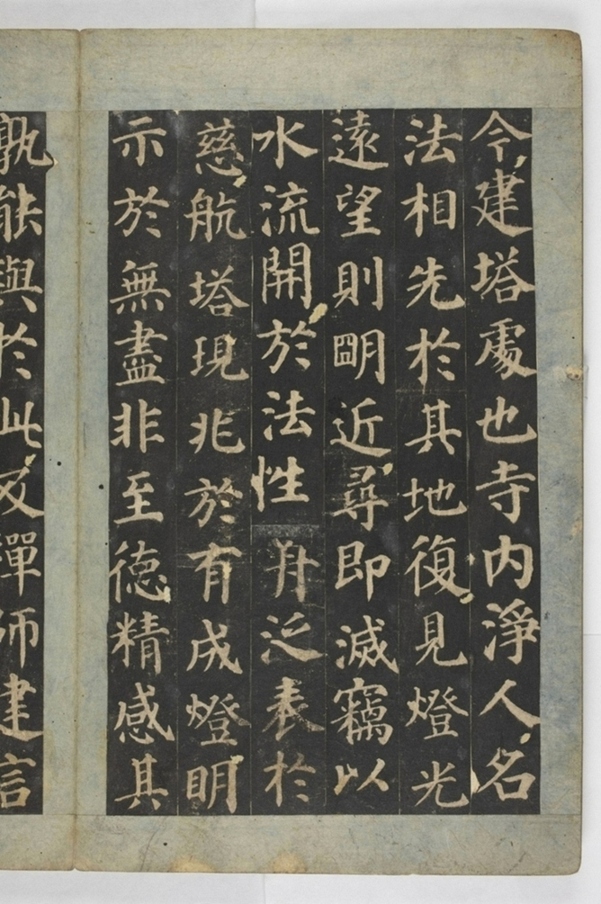 今建塔處也寺內淨人名
法相先於其地復見燈光
遠望則明近尋即滅竊以
水流開於法性舟泛表於
慈航塔現兆於有成燈明
示於無盡非至德精感其
孰能與於此及禪師建言